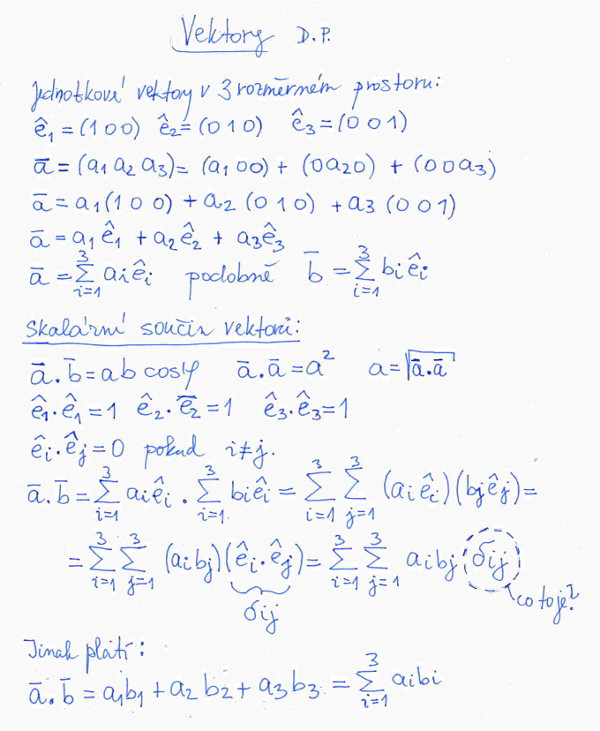 Vektory D.P.
Jednotkové vektory v 3 rozměrném prostoru:
ê₁=(1 0 0) ê₂=(0 1 0) ê₃=(0 0 1)
a̅=(a₁ a₂ a₃)= (a₁ 0 0) + (0 a₂ 0) + (0 0 a₃)
a̅=a₁(1 0 0) + a₂ (0 1 0) + a₃ (0 0 1)
a̅=a₁ê₁ + a₂ê₂ + a₃ê₃
a̅=∑_{i=1}^{3} aᵢêᵢ podobně b̅=∑_{i=1}^{3} bᵢêᵢ
Skalární součin vektorů:
a̅.b̅=ab cosφ a̅.a̅=a² a=√a̅.a̅
ê₁.ê₁=1 ê₂.e̅₂=1 ê₃.ê₃=1
êᵢ.êⱼ=0 pokud i≠j.
a̅.b̅=∑_{i=1}^{3} aᵢêᵢ . ∑_{i=1}^{3} bᵢêᵢ = ∑_{i=1}^{3} ∑_{j=1}^{3} (aᵢêᵢ)(bⱼêⱼ)=
=∑_{i=1}^{3} ∑_{j=1}^{3} (aᵢbⱼ)(êᵢ.êⱼ)=∑_{i=1}^{3} ∑_{j=1}^{3} aᵢbⱼ δᵢⱼ
δᵢⱼ co to je?
Jinak platí:
a̅.b̅ = a₁b₁ + a₂b₂ + a₃b₃ = ∑_{i=1}^{3} aᵢbᵢ